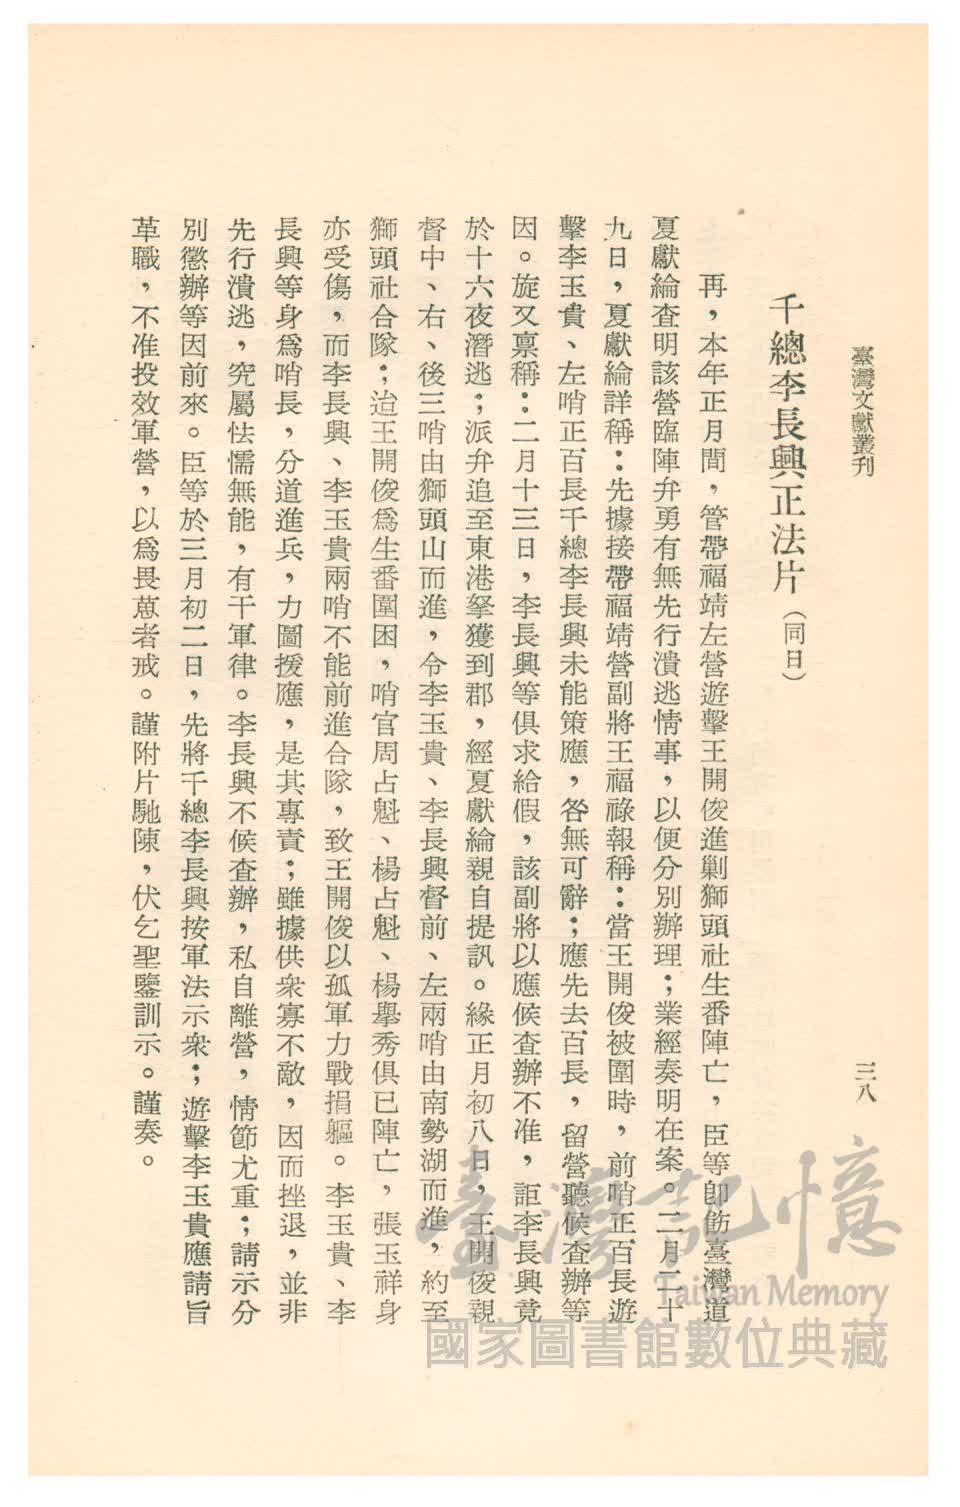 臺灣文獻叢刊
三八
千總李長興正法片（同日）
再，本年正月間，管帶福靖左營遊擊王開俊進剿獅頭社生番陣亡，臣等卽飭臺灣道
夏獻綸查明該營臨陣弁勇有無先行潰逃情事，以便分別辦理；業經奏明在案。二月二十
九日，夏獻綸詳稱：先據接帶福靖營副將王福祿報稱：當王開俊被圍時，前哨正百長遊
擊李玉貴、左哨正百長千總李長興未能策應，咎無可辭；應先去百長，留營聽候查辦等
因。旋又禀稱：二月十三日，李長興等俱求給假，該副將以應候查辦不准，詎李長興竟
於十六夜潛逃；派弁追至東港拏獲到郡，經夏獻綸親自提訊。緣正月初八日，王開俊親
督中、右、後三哨由獅頭山而進，令李玉貴、李長興督前、左兩哨由南勢湖而進，約至
獅頭社合隊；迨王開俊爲生番圍困，哨官周占魁、楊占魁、楊擧秀俱已陣亡，張玉祥身
亦受傷，而李長興、李玉貴兩哨不能前進合隊，致王開俊以孤軍力戰捐軀。李玉貴、李
長興等身爲哨長，分道進兵，力圖援應，是其專責；雖據供衆寡不敵，因而挫退，並非
先行潰逃，究屬怯懦無能，有干軍律。李長興不候查辦，私自離營，情節尤重；請示分
別懲辦等因前來。臣等於三月初二日，先將千總李長興按軍法示衆；遊擊李玉貴應請旨
革職，不准投效軍營，以爲畏葸者戒。謹附片馳陳，伏乞聖鑒訓示。謹奏。
臺灣記憶
Taiwan Memory
國家圖書館數位典藏